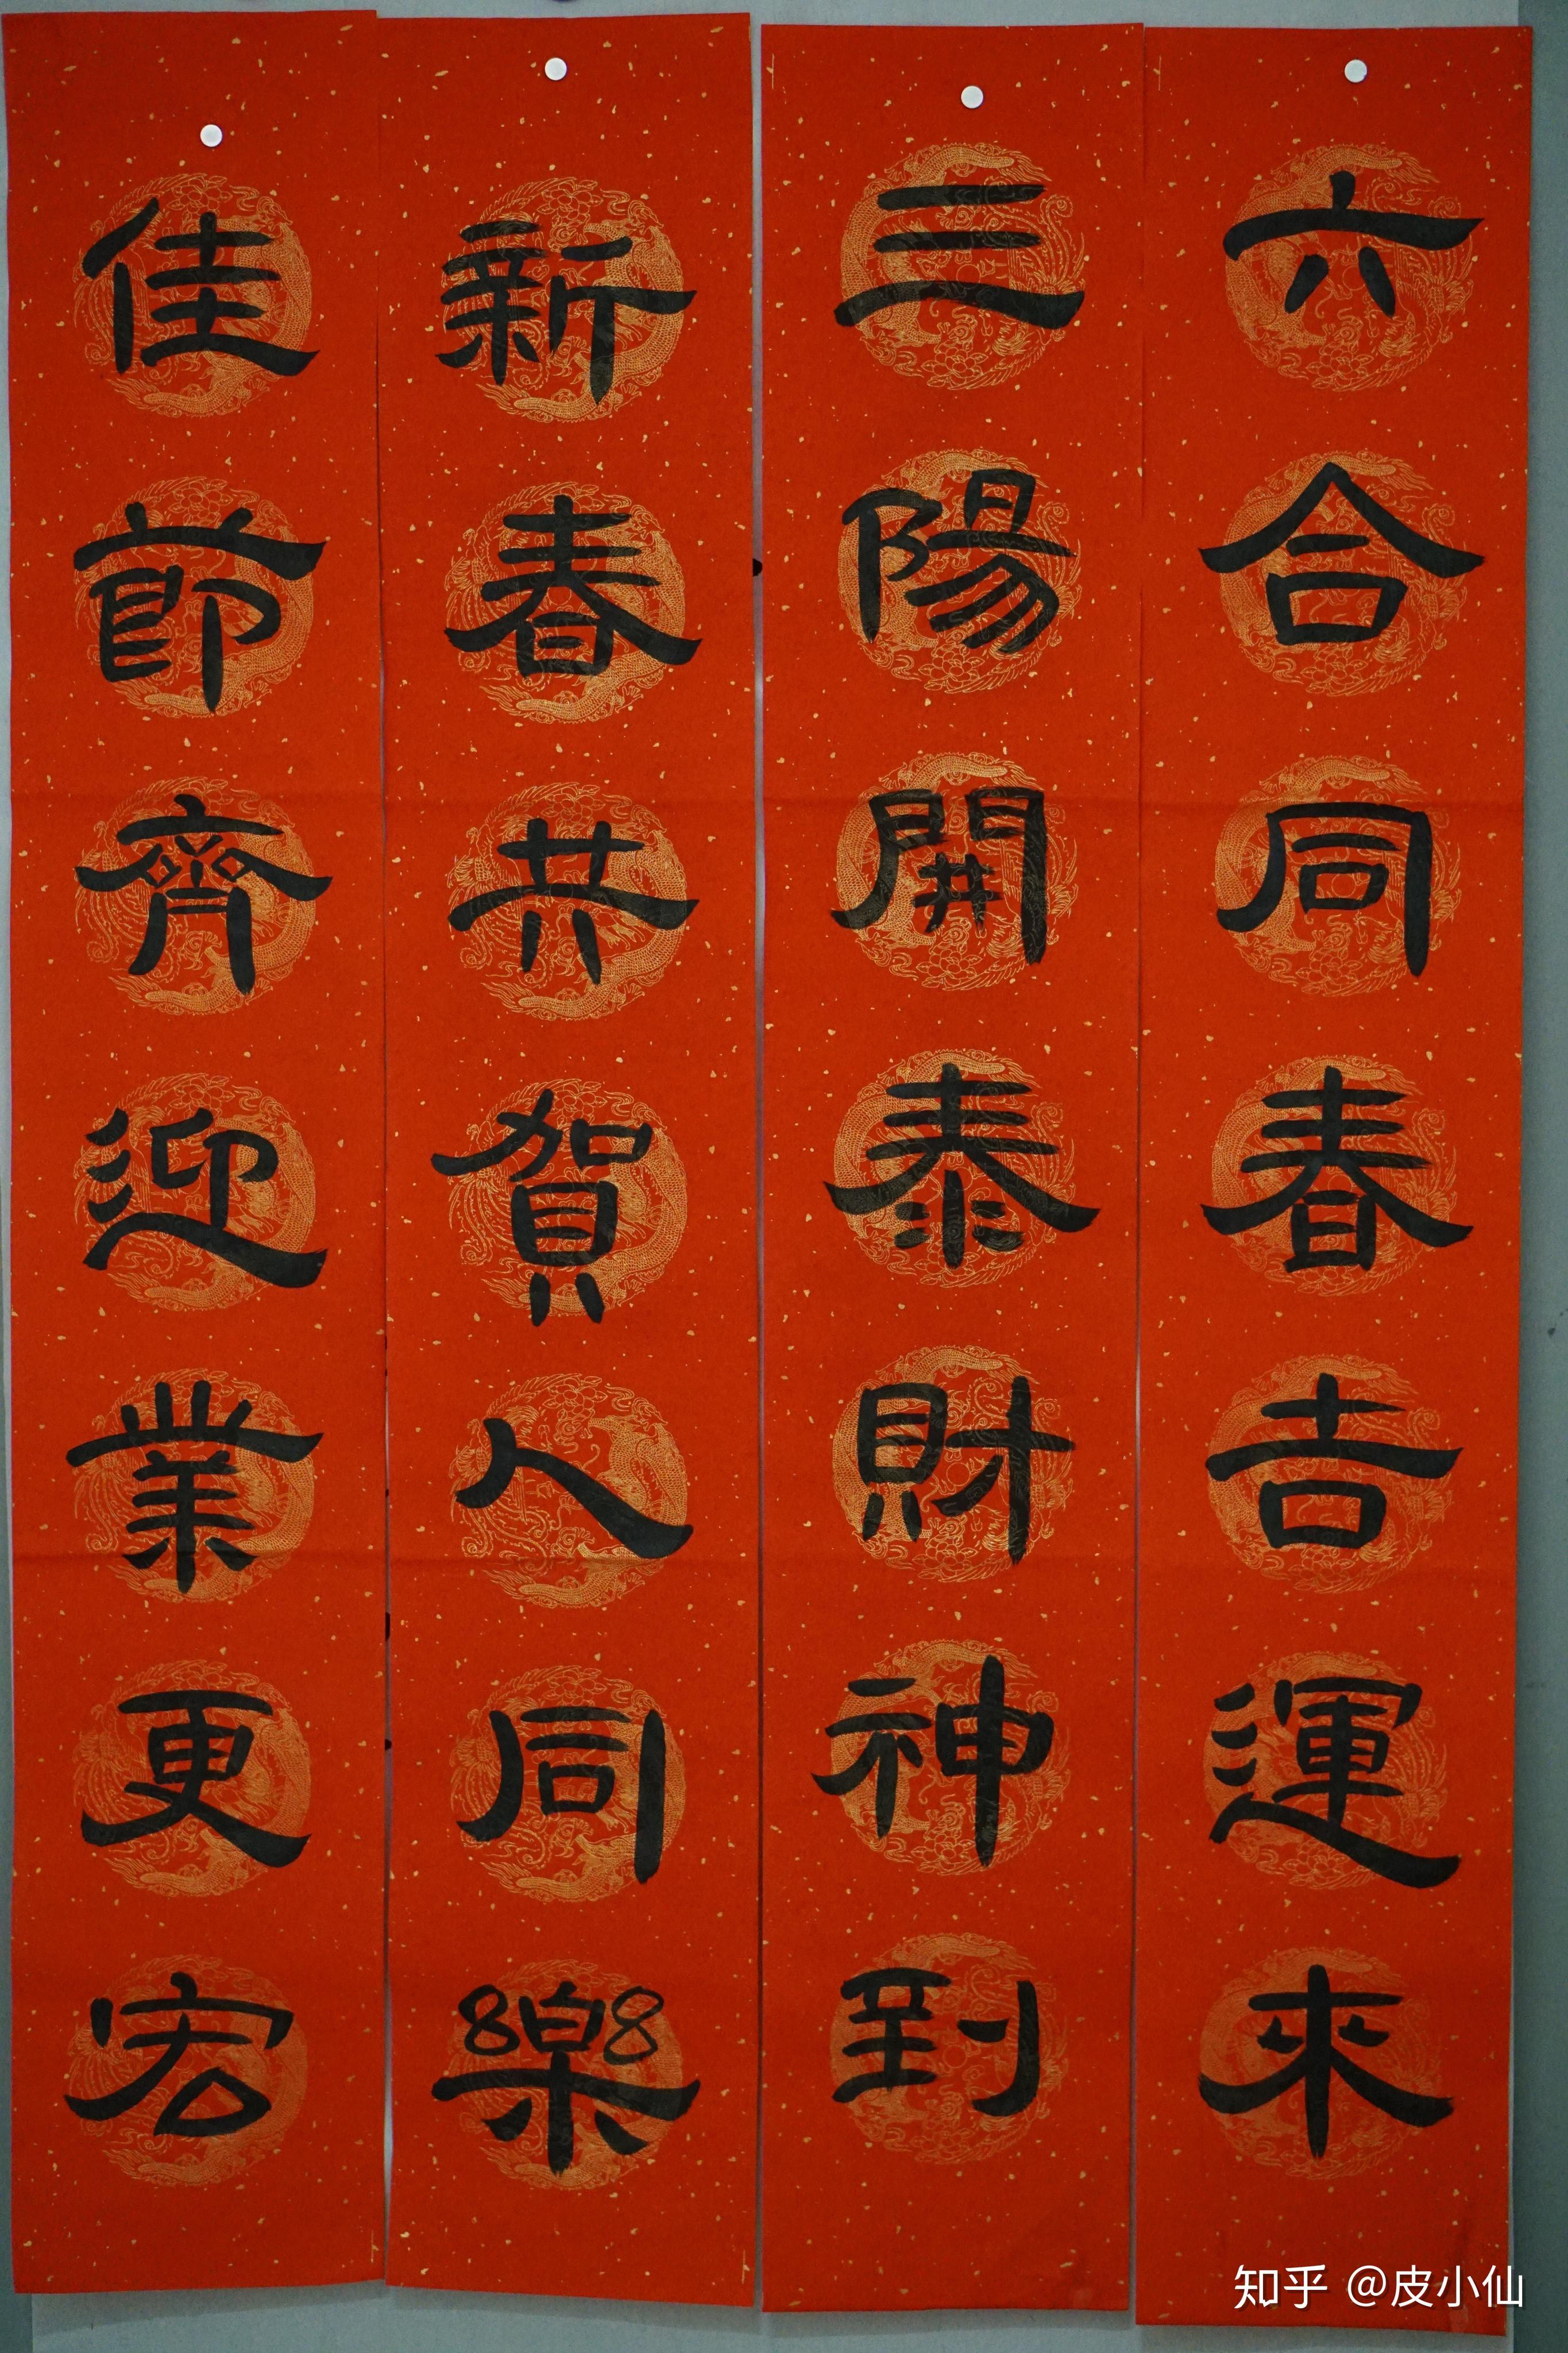 六合同春吉運來
三陽開泰財神到
新春共賀人同樂
佳節齊迎業更宏
知乎 @皮小仙